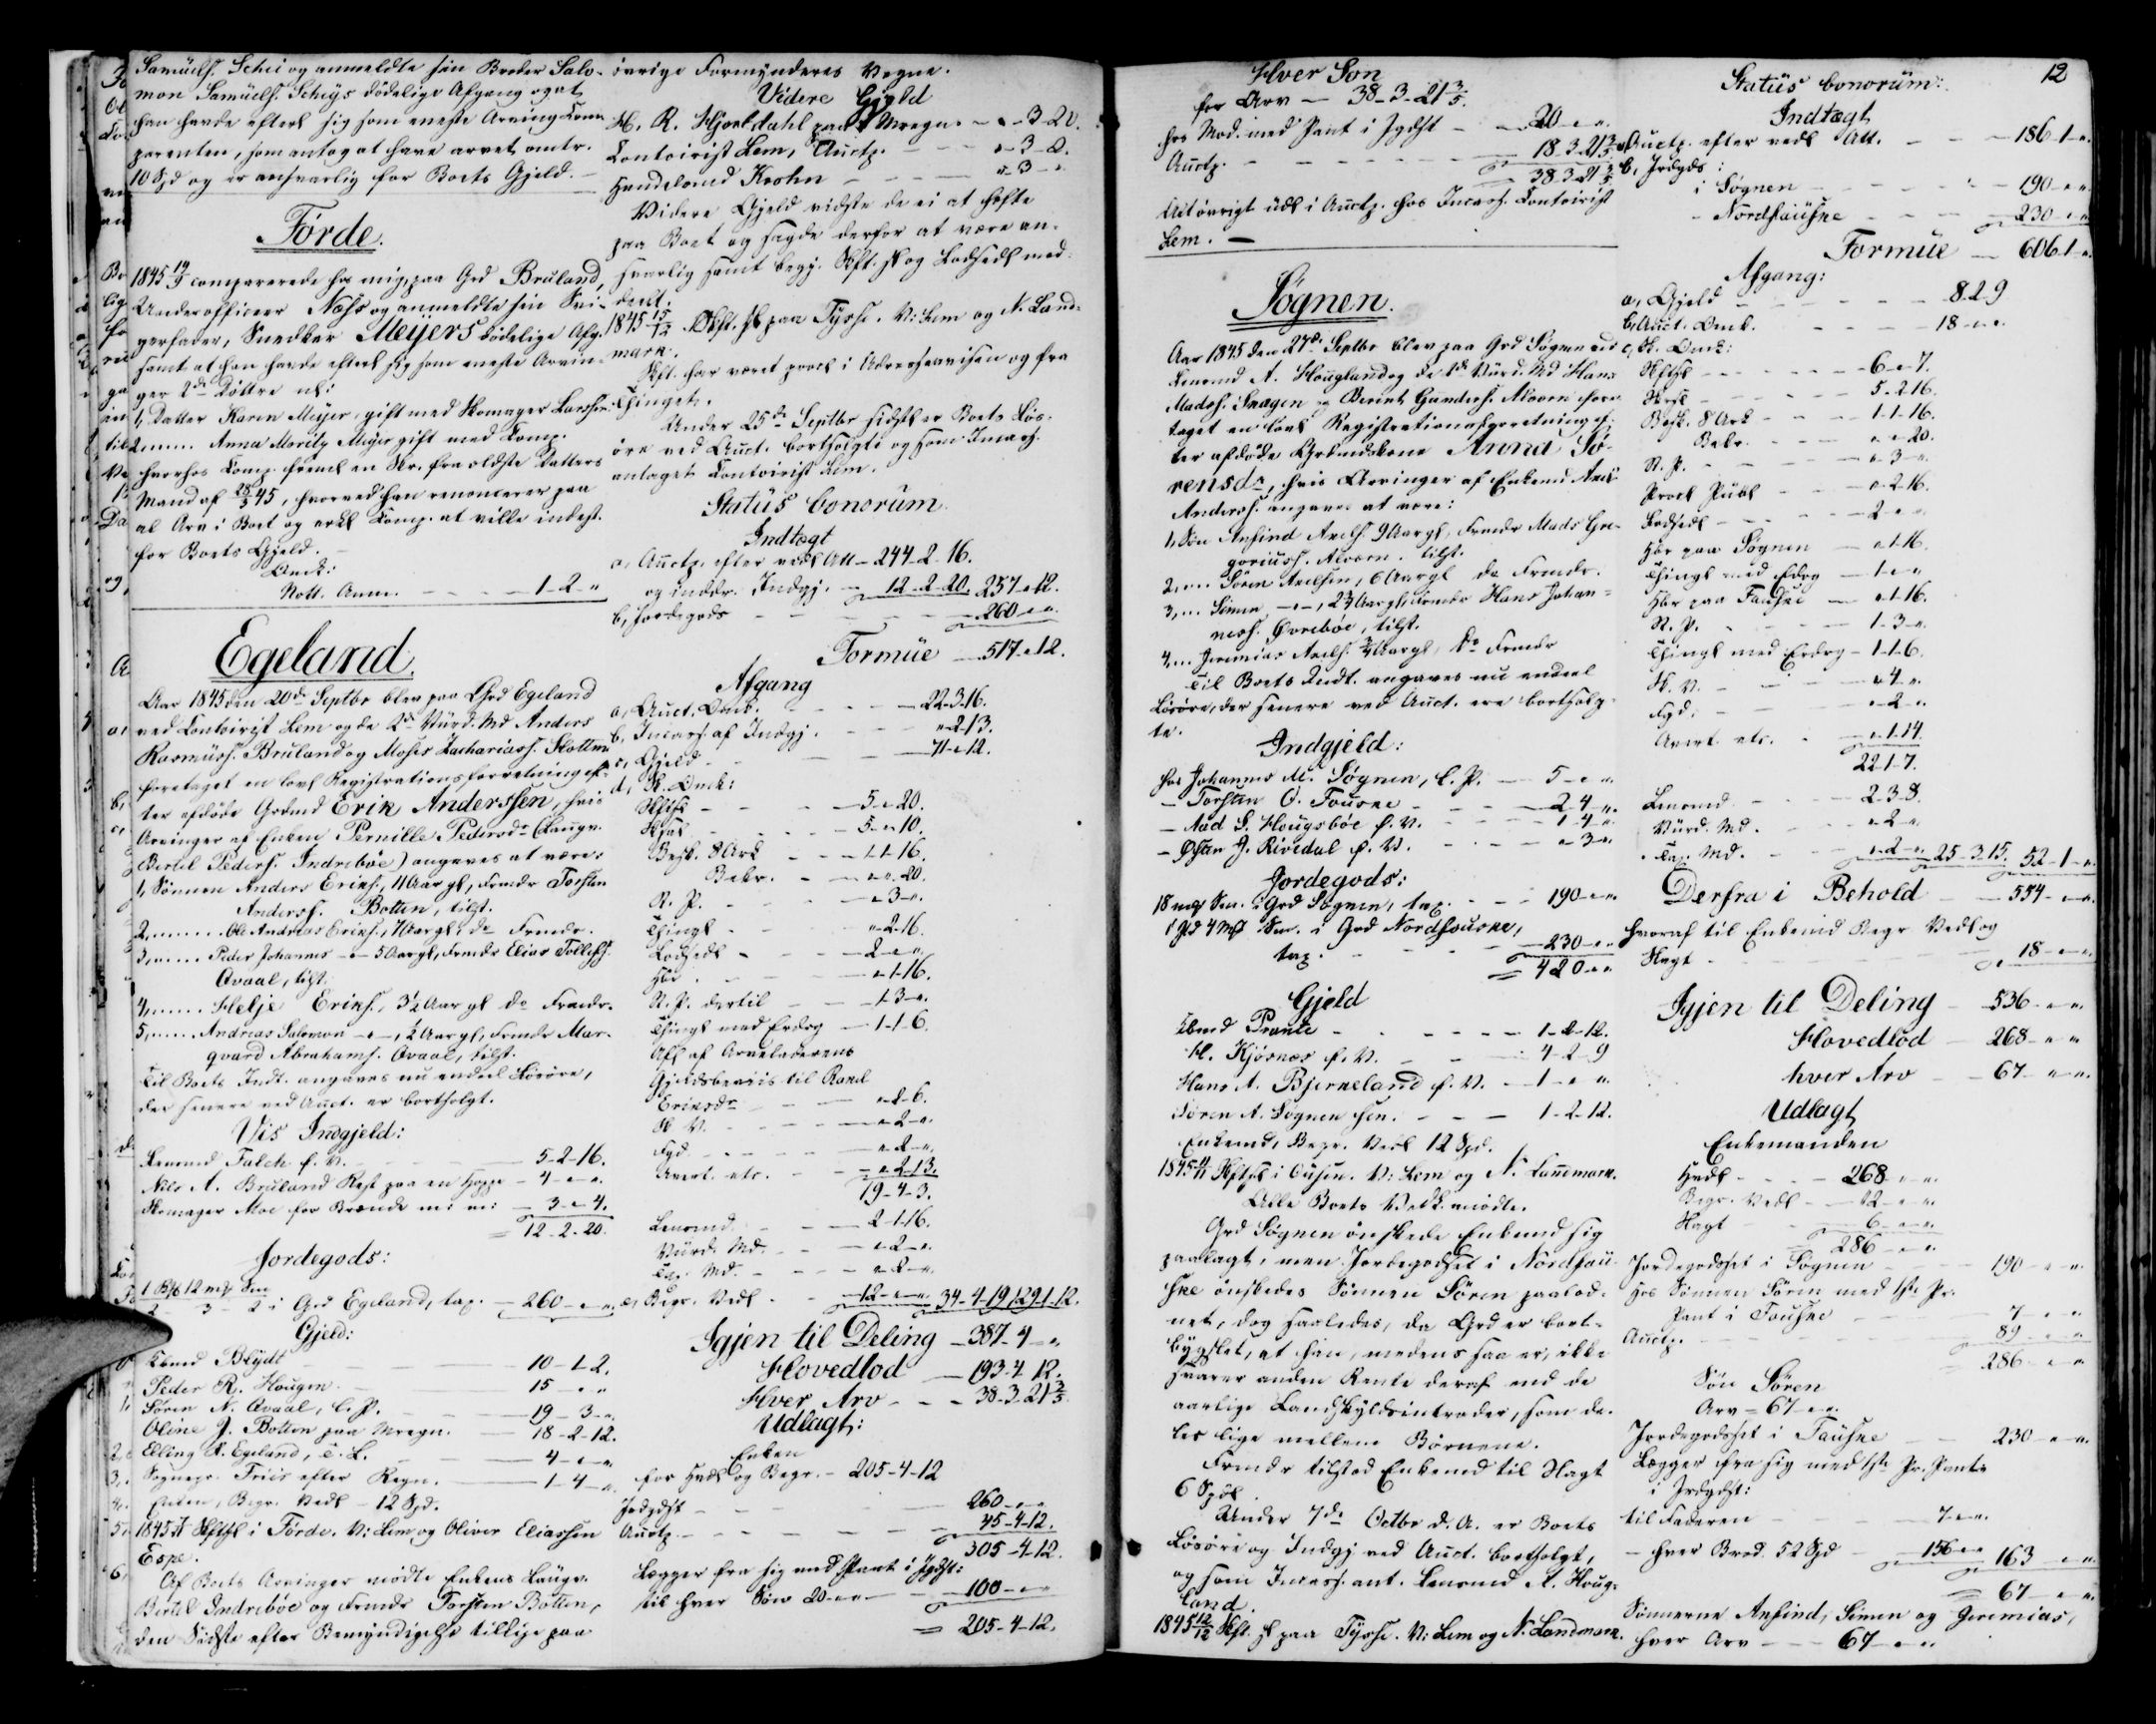 Samuels. Schei og anmeldte sin Broder Salo-
mon Samuels. Scheys dödelige Afgang og at
han havde efterl. sig som eneste Arving Com-
parenten, som antog at have arvet omtr.
10 Spd og er ansvarlig for Boets Gjeld. —
Förde.
1845 14/9 comparerede for mig, paa Grd Bruland,
Underofficeer Næss og anmeldte sin Svi-
gerfader, Snedker Meijers dödelige Afg.
samt at han havde efterl. sig som eneste Arvin-
ger 2de Döttre nl:
1, Datter Karen Meyer, gift med Skomager Larsen.
2, .... Anna Moritz Meyer gift med Comp.
hvorhos Comp. freml. en Skr. fra ældste Datters
Mand af 28/3 45, hvorved han renoncerer paa
al Arv i Boet og erkl. Comp. at ville indest.
for Boets Gjeld. —
Omk:
Nott. Anm. - - - 1-2-"
Egeland.
Aar 1845 den 20de Septbr blev paa Grd Egeland
ved Contoirist Lem og de 2de Vurd. Md Anders
Rasmuss. Bruland og Moses Zachariass. Slotten
foretaget en lovl. Registrationsforretning ef-
ter afdöde Grdmd Erik Anderssen, hvis
Arvinger af Enken Pernille Pedersdr (Laugv.
Bertil Peders. Indreböe) angaves at være:
1, Sönnen Anders Eriks., 11 Aar gl, Frmdr Torsten
Anderss. Botten, tilst.
2, .... Ole Andreas Eriks., 7 Aar gl, do Frmdr.
3, .... Peder Johannes -"- 5 Aar gl, Frmdr Elias Tollefs.
Qvaal, tilst.
4, .... Helje Eriks., 3½ Aar gl do Frmdr.
5, .... Andreas Salomon -"-, ½ Aar gl, Frmdr Mar-
qvard Abrahams. Qvaal, tilst.
Til Boets Indt. angaves nu endeel Lösöre,
der senere ved Auct. er bortsolgt.
Vis Indgjeld:
Lensmd Falch f. V. - - 5-2-16.
Nils A. Bruland Rest paa en Hoppe - 4-"-"
Skomager Moe for Brænde m: m: - 3-"-4.
= 12-2-20.
Jordegods:
1 Bpd 12 mrk Smr
2 - 3 - 2 i Grd Egeland, tax. - 260-"-"
Gjeld:
Kbmd Blydt - - - 10-1-2.
Peder R. Hougen - - 15-"-"
Sören N. Qvaal, l. P. - - 19-3-"
Oline J. Botten paa Mregn. - 18-2-12.
Elling K. Egeland, T. L. - - 4-"-"
Sognepr. Friis efter Regn. - 1-4-"
Enken, Begr. Vedl - 12 Spd.
1845 Skftsl i Förde. V: Lem og Oliver Eliassen
Espe.
Af Boets Arvinger mödte Enkens Laugv.
Bertil Indreböe og Frmdr Torsten Botten,
den Sidste efter Bemyndigelse tillige paa
övrige Formynderes Vegne.
Videre Gjeld
H. R. Hjortdahl paa Mregn. - "-3-20.
Contoirist Lem, Auctp. - - "-3-8.
Handelsmd Krohn - - "-3-"
Videre Gjeld vidste de ei at hefte
paa Boet og sagde derfor at være an-
svarlig samt begj. Skft. sl og Lodsedl. med-
deelt.
1845 15/12 Skft. sl paa Tysse. V: Lem og N. Land-
mark.
Skft. har været procl. i Adresseavisen og fra
Thinget.
Under 25de Septbr sidstl er Boets Lös-
öre ved Auct. bortsolgte og som Incass.
antaget Contoirist Lem.
Status bonorum.
Indtægt
a, Auctp. efter vedl Att - 244-2-16.
og inddr. Indgj. - 12-2-20. 257-"-12.
b, Jordegods - - - 260-"-"
Formue - 517-"-12.
Afgang
a, Auct. Omk. - - 22-3-16.
b, Incass. af Indgj. - - "-2-13.
c, Gjeld - - 71-"-12.
d, Sk. Omk:
Skftsl - - 5-"-20.
Sksal - - 5-"-10.
Besk. 8 Ark - - 1-1-16.
Bekr. - - "-"-20.
N. P. - - "-3-"
Thingl - - "-2-16.
Lodsedl - - 2-"-"
Hbr - - "-1-16.
N. P. dertil - - 1-3-"
Thingl med Erdog - 1-1-6.
Afl af Arveladerens
Gjeldsbeviis til Randi
Eriksdr - - "-2-6.
Sk. V. - - "-2-"
Fgd. - - "-2-"
Avert. etc. - - "-2-13.
19-4-3.
Lensmd - - 2-1-16.
Vurd. Md. - - "-2-"
Tax. Md. - - "-2-"
e, Begr. Vedl - 12-"-" 34-4-19 129-1-12.
Igjen til Deling - 387-4-"
Hovedlod - 193-4-12.
Hver Arv - - 38-3-21 3/5.
Udlagt:
Enken
for Hvdl og Begr. - 205-4-12
Jrdgdst - - - 260-"-"
Auctp. - - - 45-4-12.
305-4-12.
Lægger fra sig med Pant i Jgdst:
til hver Sön 20-"-" - 100-"-"
= 205-4-12.
Hver Son
for Arv - 38-3-21 3/5.
hos Mod. med Pant i Jgdst - - 20-"-"
Auctp. - - - 18-3-21 3/5
38-3-21 3/5
Alt övrigt udl i Auctp. hos Incass. Contoirist
Lem. —
Sögnen.
Aar 1845 den 27de Septbr blev paa Grd Sögnen ved
Lensmd A. Hougland og de 2de Vurd. Md Hans
Mads. Smagen og Berent Gunders. Moen fore-
taget en lovl Registrationsforretning ef-
ter afdöde Grdmdskone Anna Sö-
rensdr, hvis Arvinger af Enkemd Axel
Anderss. angaves at være:
1, Sön Anfind Axels. 9 Aar gl, Frmdr Mads Gre-
goriuss. Moen. tilst.
2, ... Sören Axelsen, 6 Aar gl do Frmdr.
3, ... Simen -"-, 2¾ Aar gl, Frmdr Hans Johan-
ness. Övreböe, tilst.
4, ... Jeremias Axels. ¾ Aar gl, do Frmdr
Til Boets Indt. angaves nu endeel
Lösöre, der senere ved Auct. ere bortsolg-
te.
Indgjeld:
hos Johannes M. Sögnen, l. P. - 5-"-"
- Torsten O. Fouske - - 2-4-"
- Mad S. Hougsböe f. V. - - 1-4-"
- Östen J. Rivedal f. V. - - "-3-"
Jordegods:
18 mrk Smr. i Grd Sögnen, tax. - - 190-"-"
1 Spd 4 mrk Smr. i Grd Nordfouske,
tax. - - 230-"-"
= 420-"-"
Gjeld
Kbmd Prante - - - 1-2-12.
H. Kjösnæs f. V. - - 4-2-9
Hans A. Bjerneland f. V. - 1-"-"
Sören A. Sögnen sen. - - 1-2-12.
Enkemd, Begr. Vedl 12 Spd.
1845 4/11 Skftsl i Ousen. V: Lem og N. Landmark.
Alle Boets Vedk. mödte.
Grd Sögnen önskede Enkemd sig
paalagt, men Jordegodset i Nordfou-
ske önskedes Sönnen Sören paalod-
net, dog saaledes, da Grd er bort-
bygslet, at han, medens saa er, ikke
svarer anden Rente deraf end de
aarlige Landskyldsintrader, som de-
les lige mellem Börnene.
Frmdr tilstod Enkemd til Slagt
6 Spdl
Under 7de Octbr d. A. er Boets
Lösöre og Indgj ved Auct. bortsolgt,
og som Incass. ant. Lensmd A. Houg-
land.
1845 12/12 Skft. sl paa Tysse. V: Lem og N. Landmark.
12
Status bonorum:
Indtægt
a, Auctp. efter vedl Att. - - 186-1-"
b, Jrdgds:
i Sögnen - - - 190-"-"
- Nordfauske - - 230-"-"
Formue - 606-1-"
Afgang:
a, Gjeld - - - 8-2-9
b, Auct. Omk. - - 18-"-"
c, Sk. Omk:
Skftsl - - 6-"-7.
Sksal - - 5-2-16.
Besk. 8 Ark - - 1-1-16.
Bekr. - - "-"-20.
N. P. - - "-3-"
Procl Publ - - "-2-16.
Lodsedl - - 2-"-"
Hbr paa Sögnen - "-1-16.
Thingl med Erdog - 1-"-"
Hbr paa Fauske - "-1-16.
N. P. - - 1-3-"
Thingl med Erdog - 1-1-6.
Sk. V. - - "-4-"
Fgd. - - "-2-"
Avert. etc. - - "-1-14.
22-1-7.
Lensmd - - 2-3-8.
Vurd. Md. - - "-2-"
Tax. Md. - - "-2-" 25-3-15. 52-1-"
Derfra i Behold - 554-"-"
hvoraf til Enkemd Begr Vedl og
Slagt - - 18-"-"
Igjen til Deling - 536-"-"
Hovedlod - 268-"-"
hver Arv - 67-"-"
Udlagt
Enkemanden
Hvdl - - 268-"-"
Begr. Vedl - 12-"-"
Slagt - 6-"-"
286-"-"
Jordegodset i Sögnen - - 190-"-"
Hos Sönnen Sören med 1ste Pr.
Pant i Fouske - - 7-"-"
Auctp. - - - 89-"-"
286-"-"
Sön Sören
Arv = 67-"-"
Jordegodset i Fauske - - 230-"-"
Lægger fra sig med 1ste Pr. Pant
i Jrdgdst:
til Faderen - - 7-"-"
- hver Brod. 52 Spd - 156-"-" 163-"-"
= 67-"-"
Sönnerne Anfind, Simen og Jeremias,
hver Arv - - 67-"-"